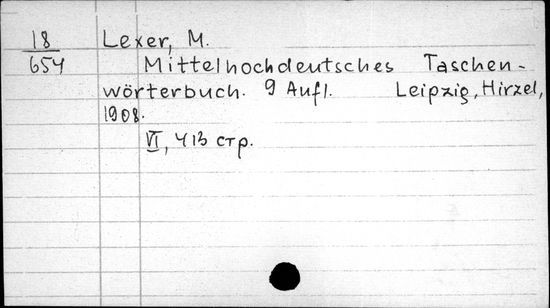 18 Lexer, M.
654 Mittelhochdeutsches Taschen-
wörterbuch. 9 Aufl. Leipzig, Hirzel,
1908.
VI, 413 стр.